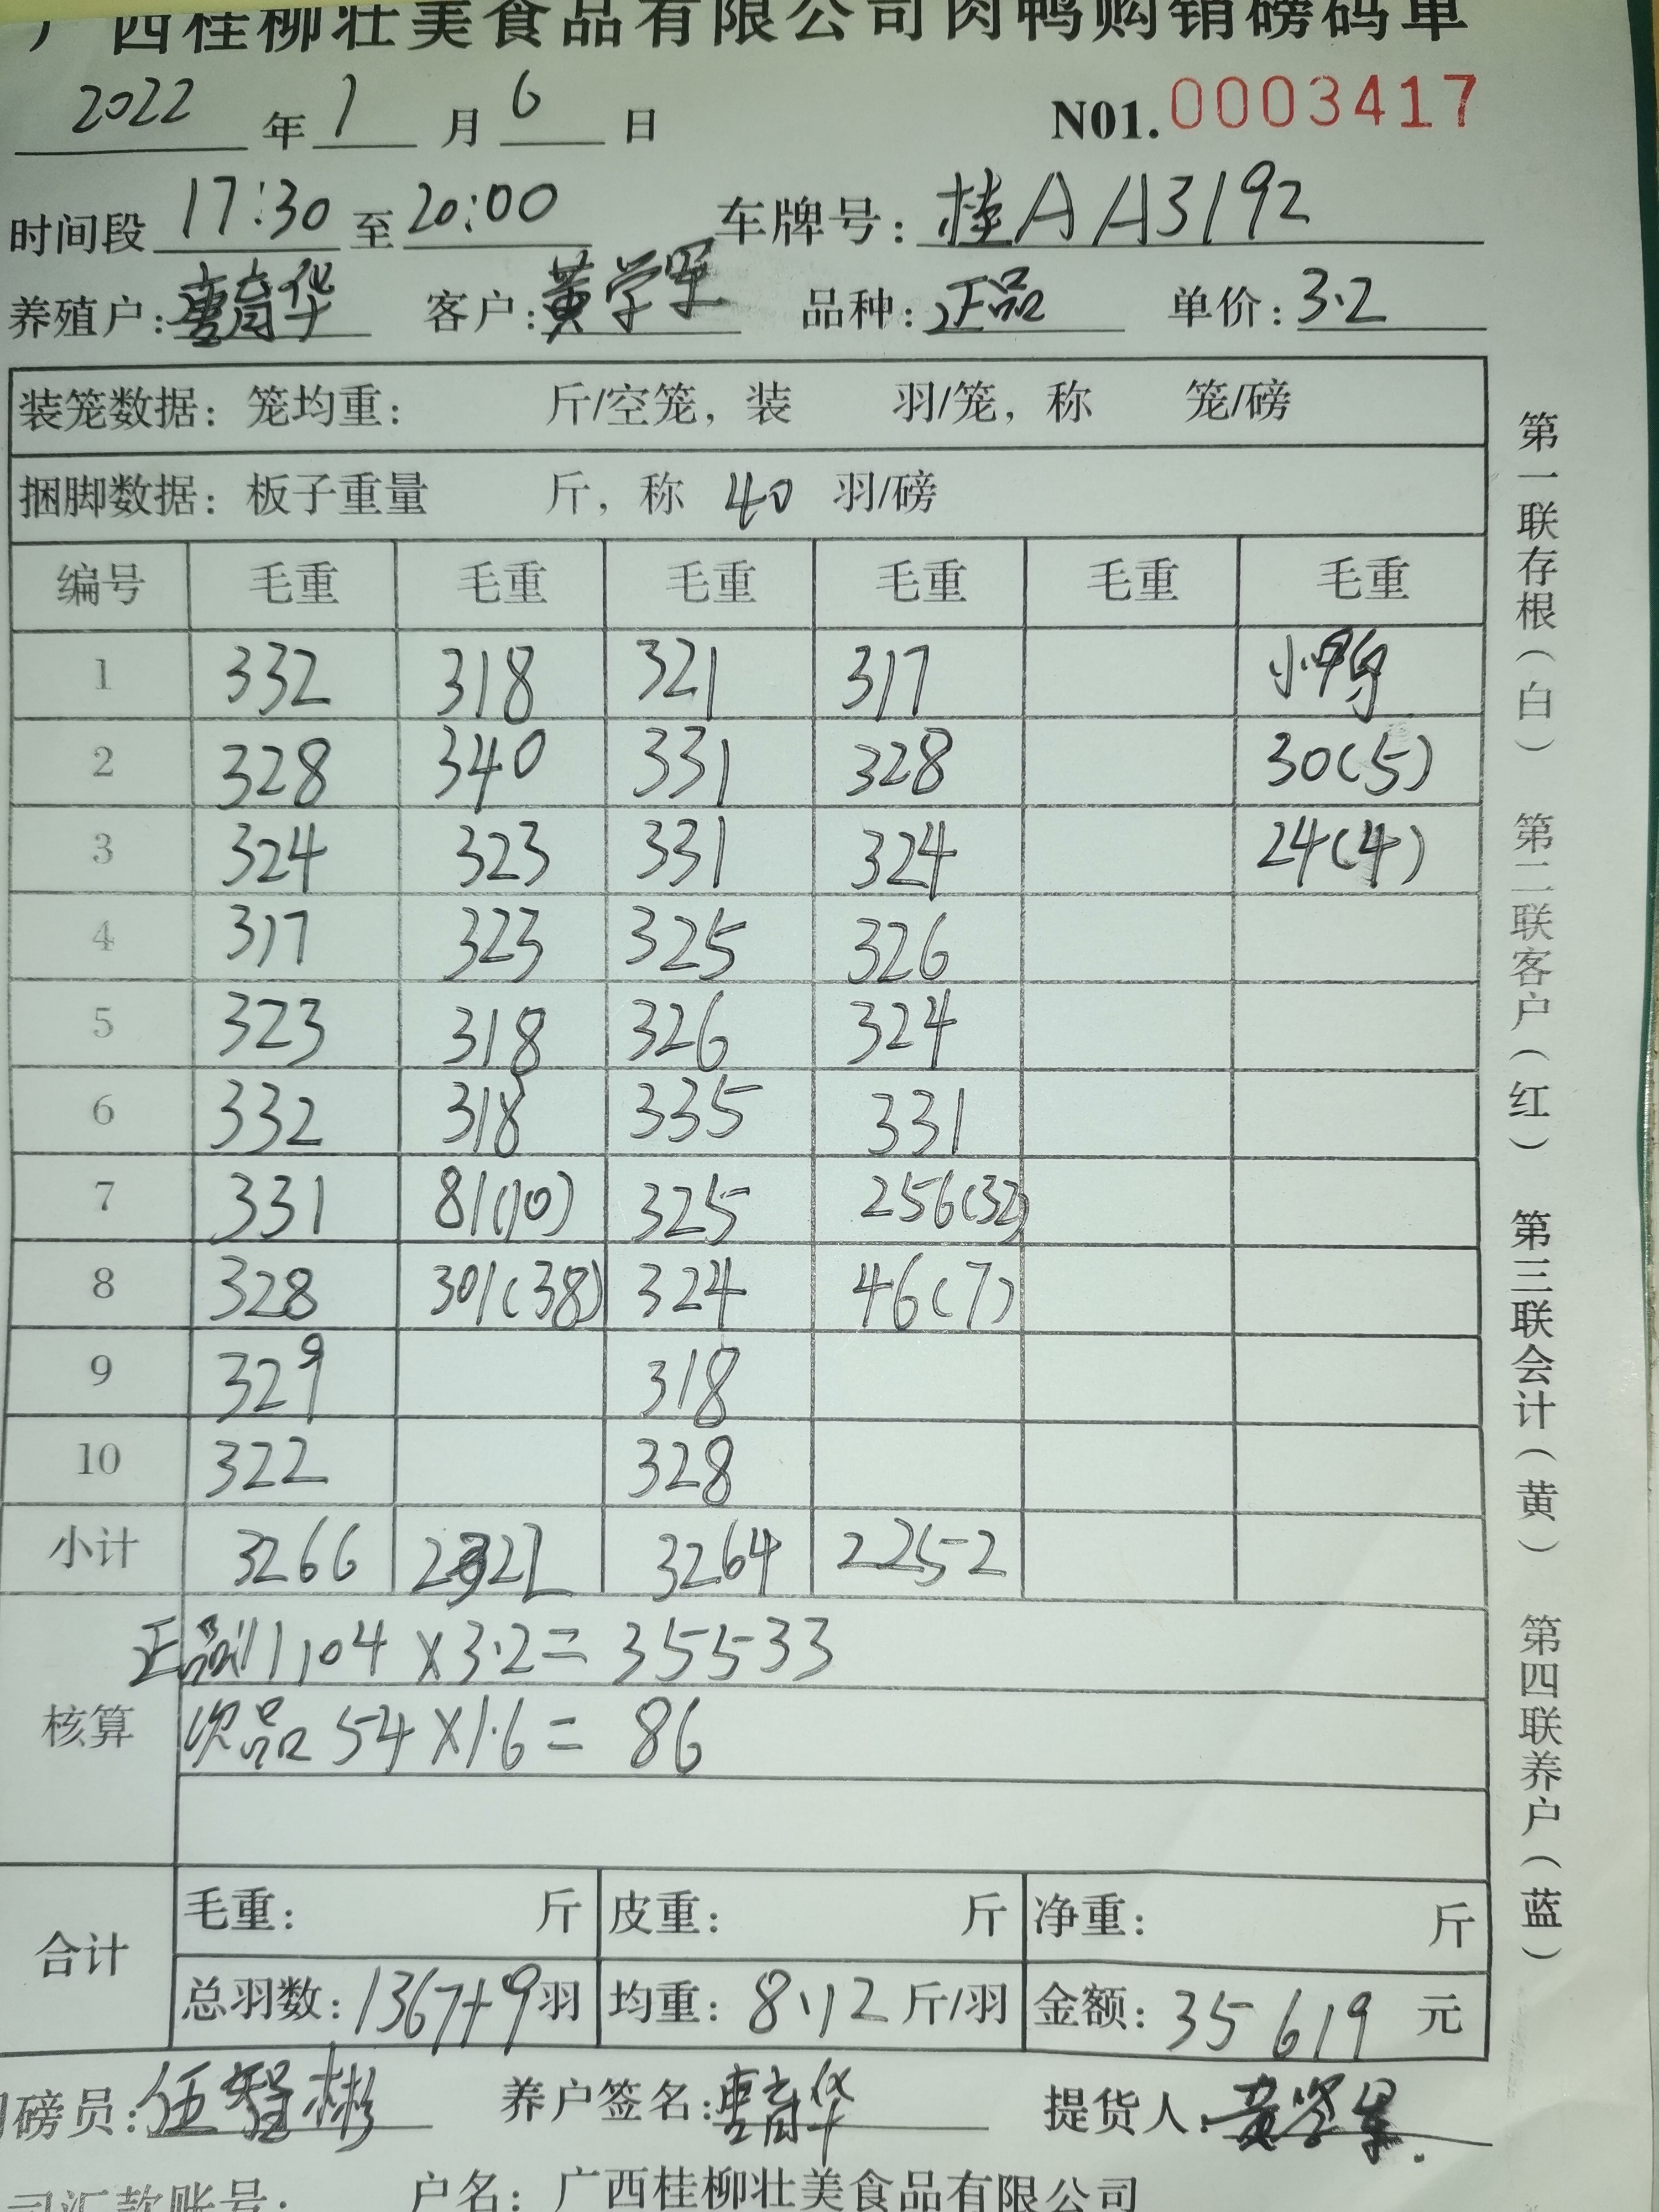 广西桂柳壮美食品有限公司肉鸭购销磅码单
2022年1月6日 N01.0003417
时间段 17:30 至 20:00 车牌号: 桂AA3192
养殖户: 育华 客户: 黄学军 品种: 正品 单价: 3.2
装笼数据: 笼均重: 斤/空笼, 装 羽/笼, 称 笼/磅
捆脚数据: 板子重量 斤, 称 40 羽/磅
编号 毛重 毛重 毛重 毛重 毛重 毛重
1 332 318 321 317 小鸭
2 328 340 331 328 30(5)
3 324 323 331 324 24(4)
4 317 323 325 326
5 323 318 326 324
6 332 318 335 331
7 331 81(10) 325 256(32)
8 328 301(38) 324 46(7)
9 329 318
10 322 328
小计 3266 2322 3264 2252
正品 11104 X3.2= 35533
核算
次品 54 X1.6= 86
合计
毛重: 斤 皮重: 斤 净重: 斤
总羽数: 1367+9 羽 均重: 8.12 斤/羽 金额: 35619 元
磅员: 任智彬 养户签名: 育华 提货人: 黄学军
司汇款账号: 户名: 广西桂柳壮美食品有限公司
第一联存根(白) 第二联客户(红) 第三联会计(黄) 第四联养户(蓝)